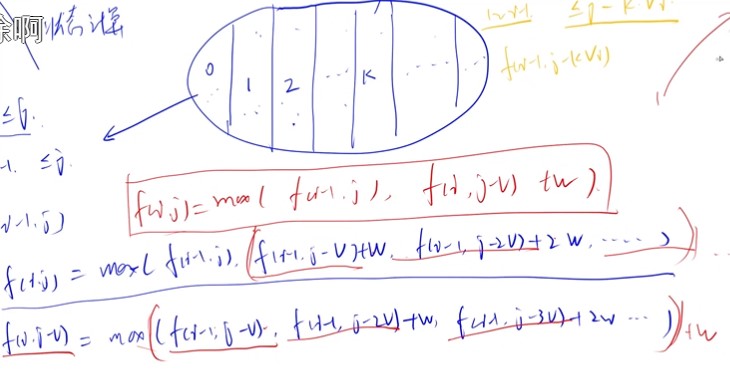 余啊
状态计算
≤j-kVi
f(i-1,j-kVi)
0 1 2 K
≤j.
-1. ≤j.
i-1.j)
f(i,j)=max( f(i-1,j), f(i,j-v)+w).
f(i,j) = max( f(i-1,j), f(i-1,j-v)+w, f(i-1,j-2v)+2w, ······ )
f(i,j-v) = max( f(i-1,j-v), f(i-1,j-2v)+w, f(i-1,j-3v)+2w ··· ) +w